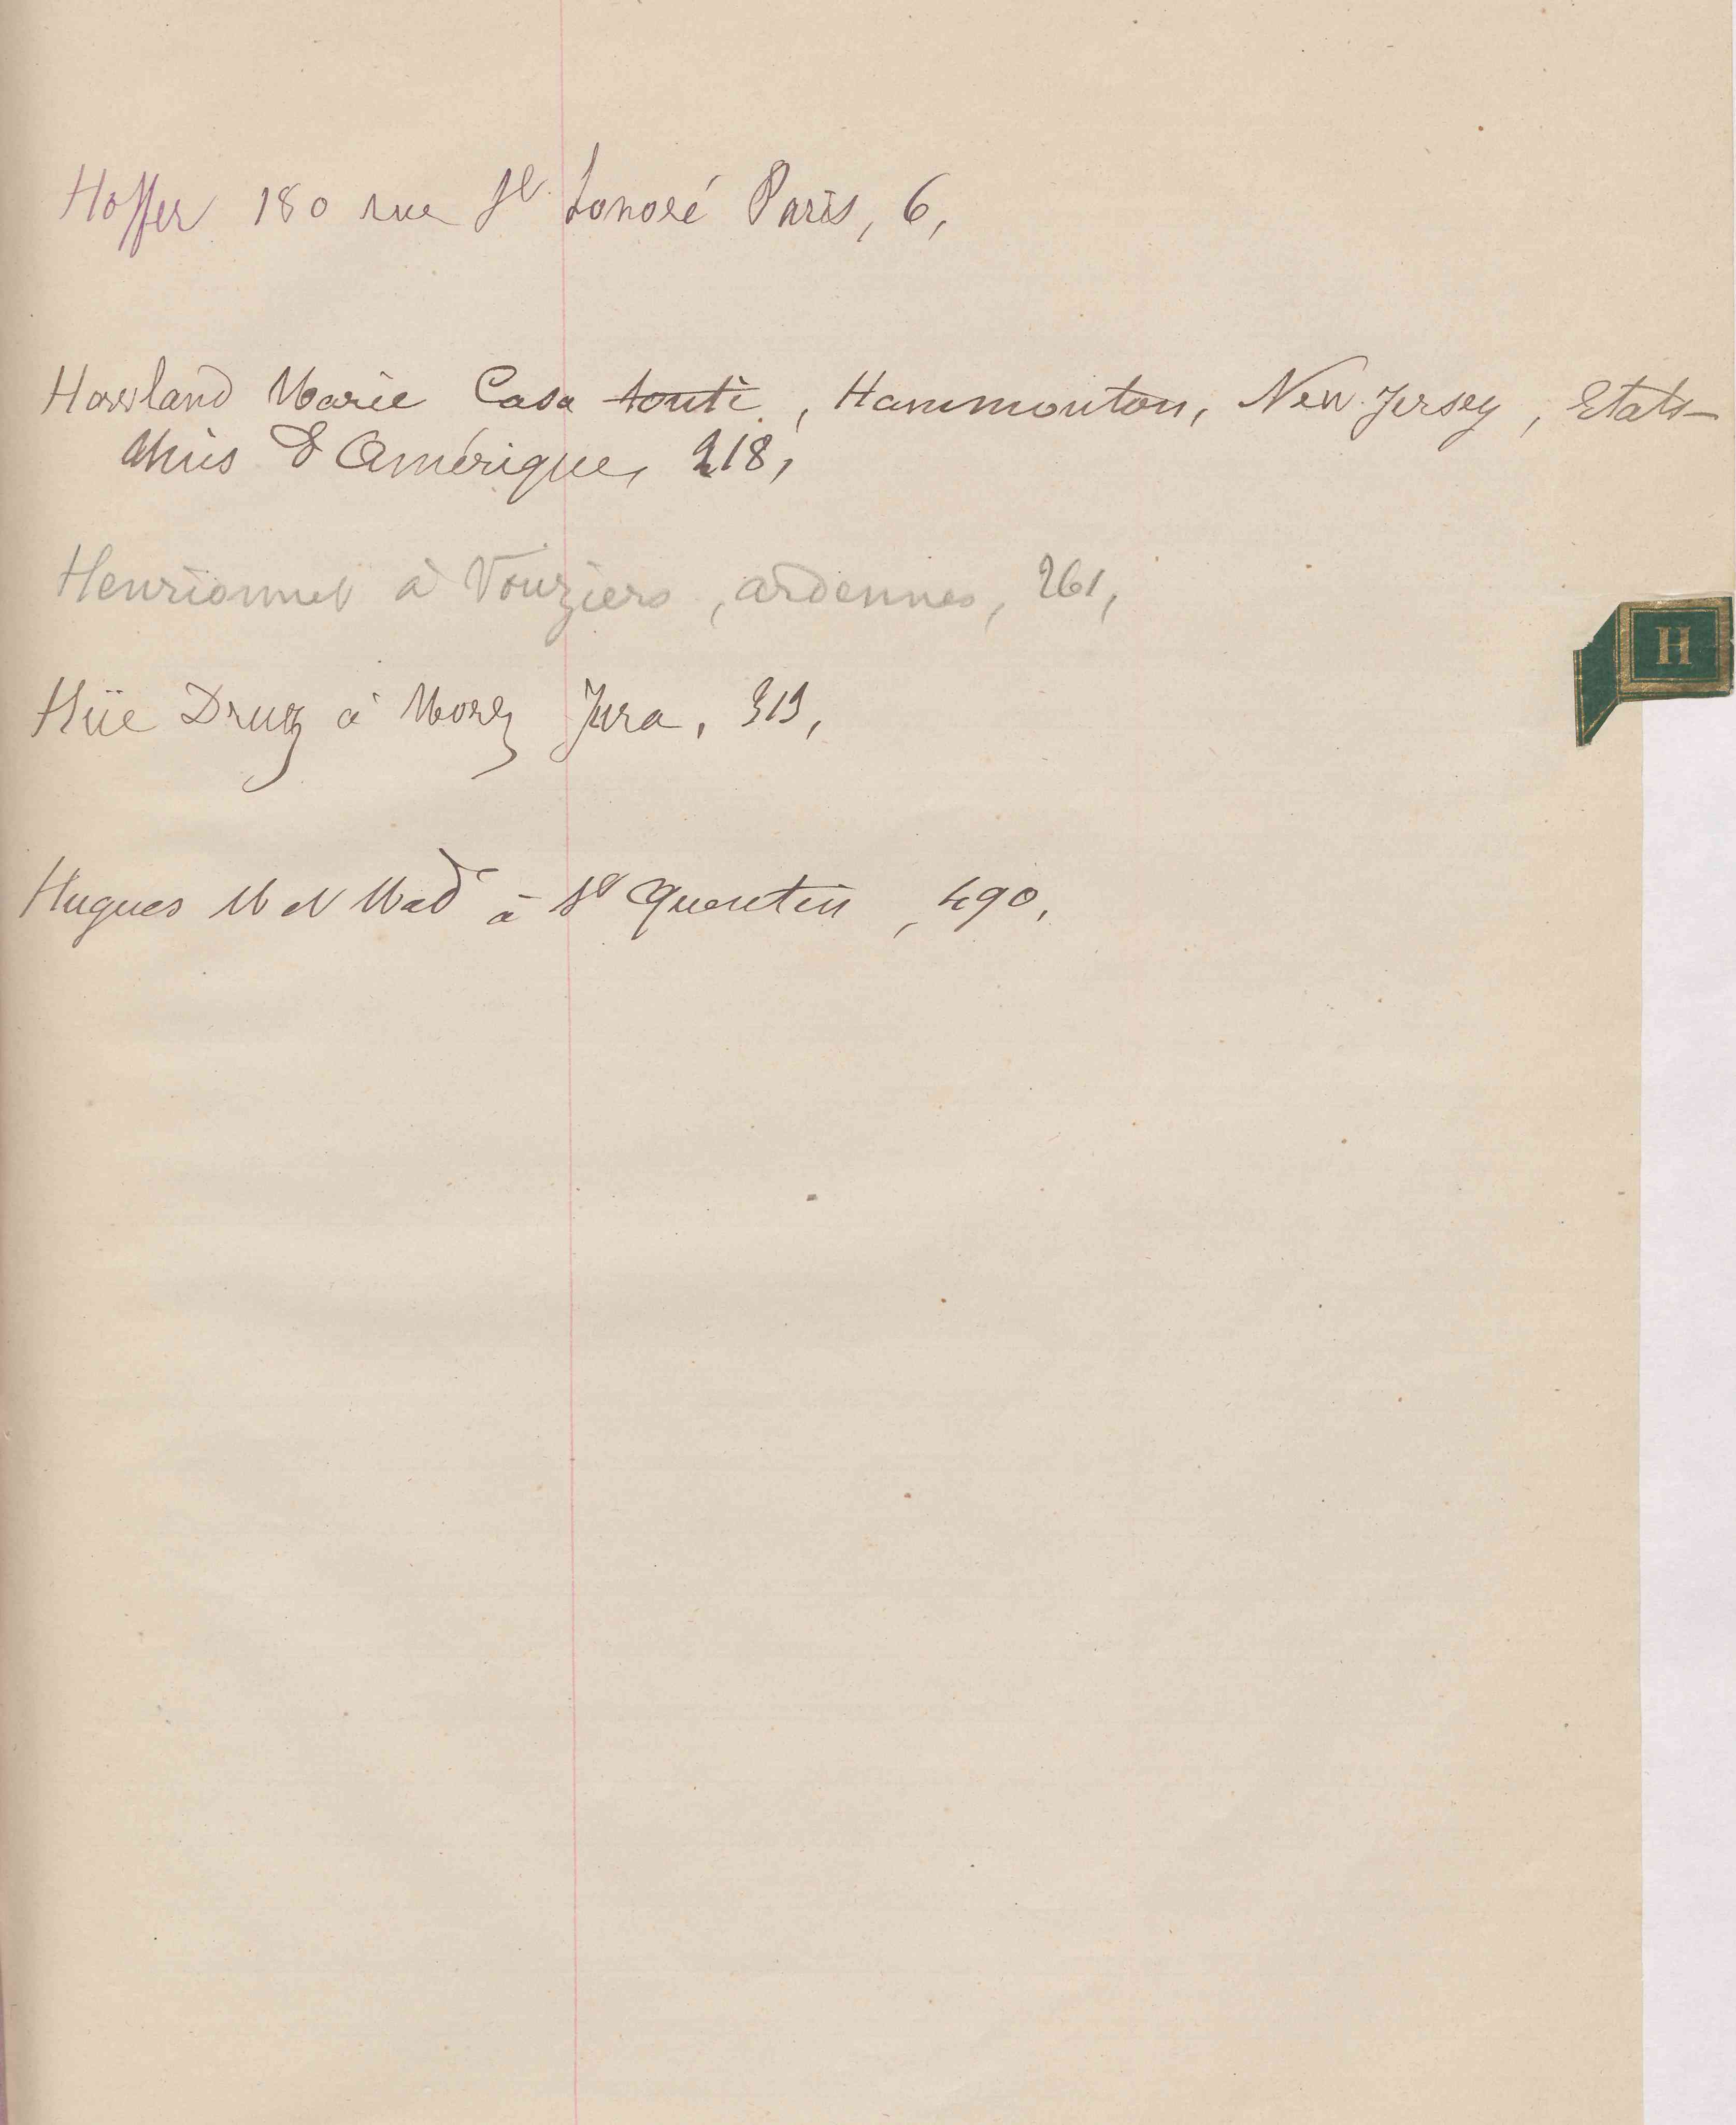 Hoffer 180 rue St honoré Paris, 6,
Howland Marie Casa tonti, Hammonton, New-Jersey, Etats-
Unis d'Amérique, 218,
Henrionnet à Vouziers, ardennes, 261,
H
Hüe Druz à Morez Jura, 313,
Hugues M et Mad à St Quentin, 490,